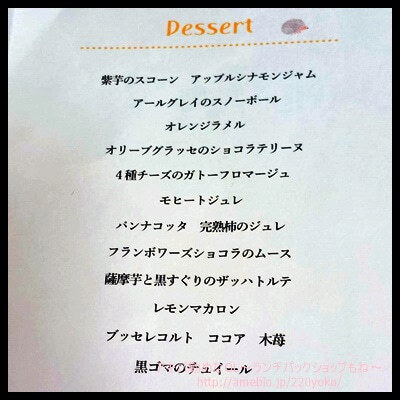 Dessert
紫芋のスコーン　アップルシナモンジャム
アールグレイのスノーボール
オレンジラメル
オリーブグラッセのショコラテリーヌ
４種チーズのガトーフロマージュ
モヒートジュレ
パンナコッタ　完熟柿のジュレ
フランボワーズショコラのムース
薩摩芋と黒すぐりのザッハトルテ
レモンマカロン
ブッセレコルト　ココア　木苺
黒ゴマのチュイール
http://ameblo.jp/220yoko/